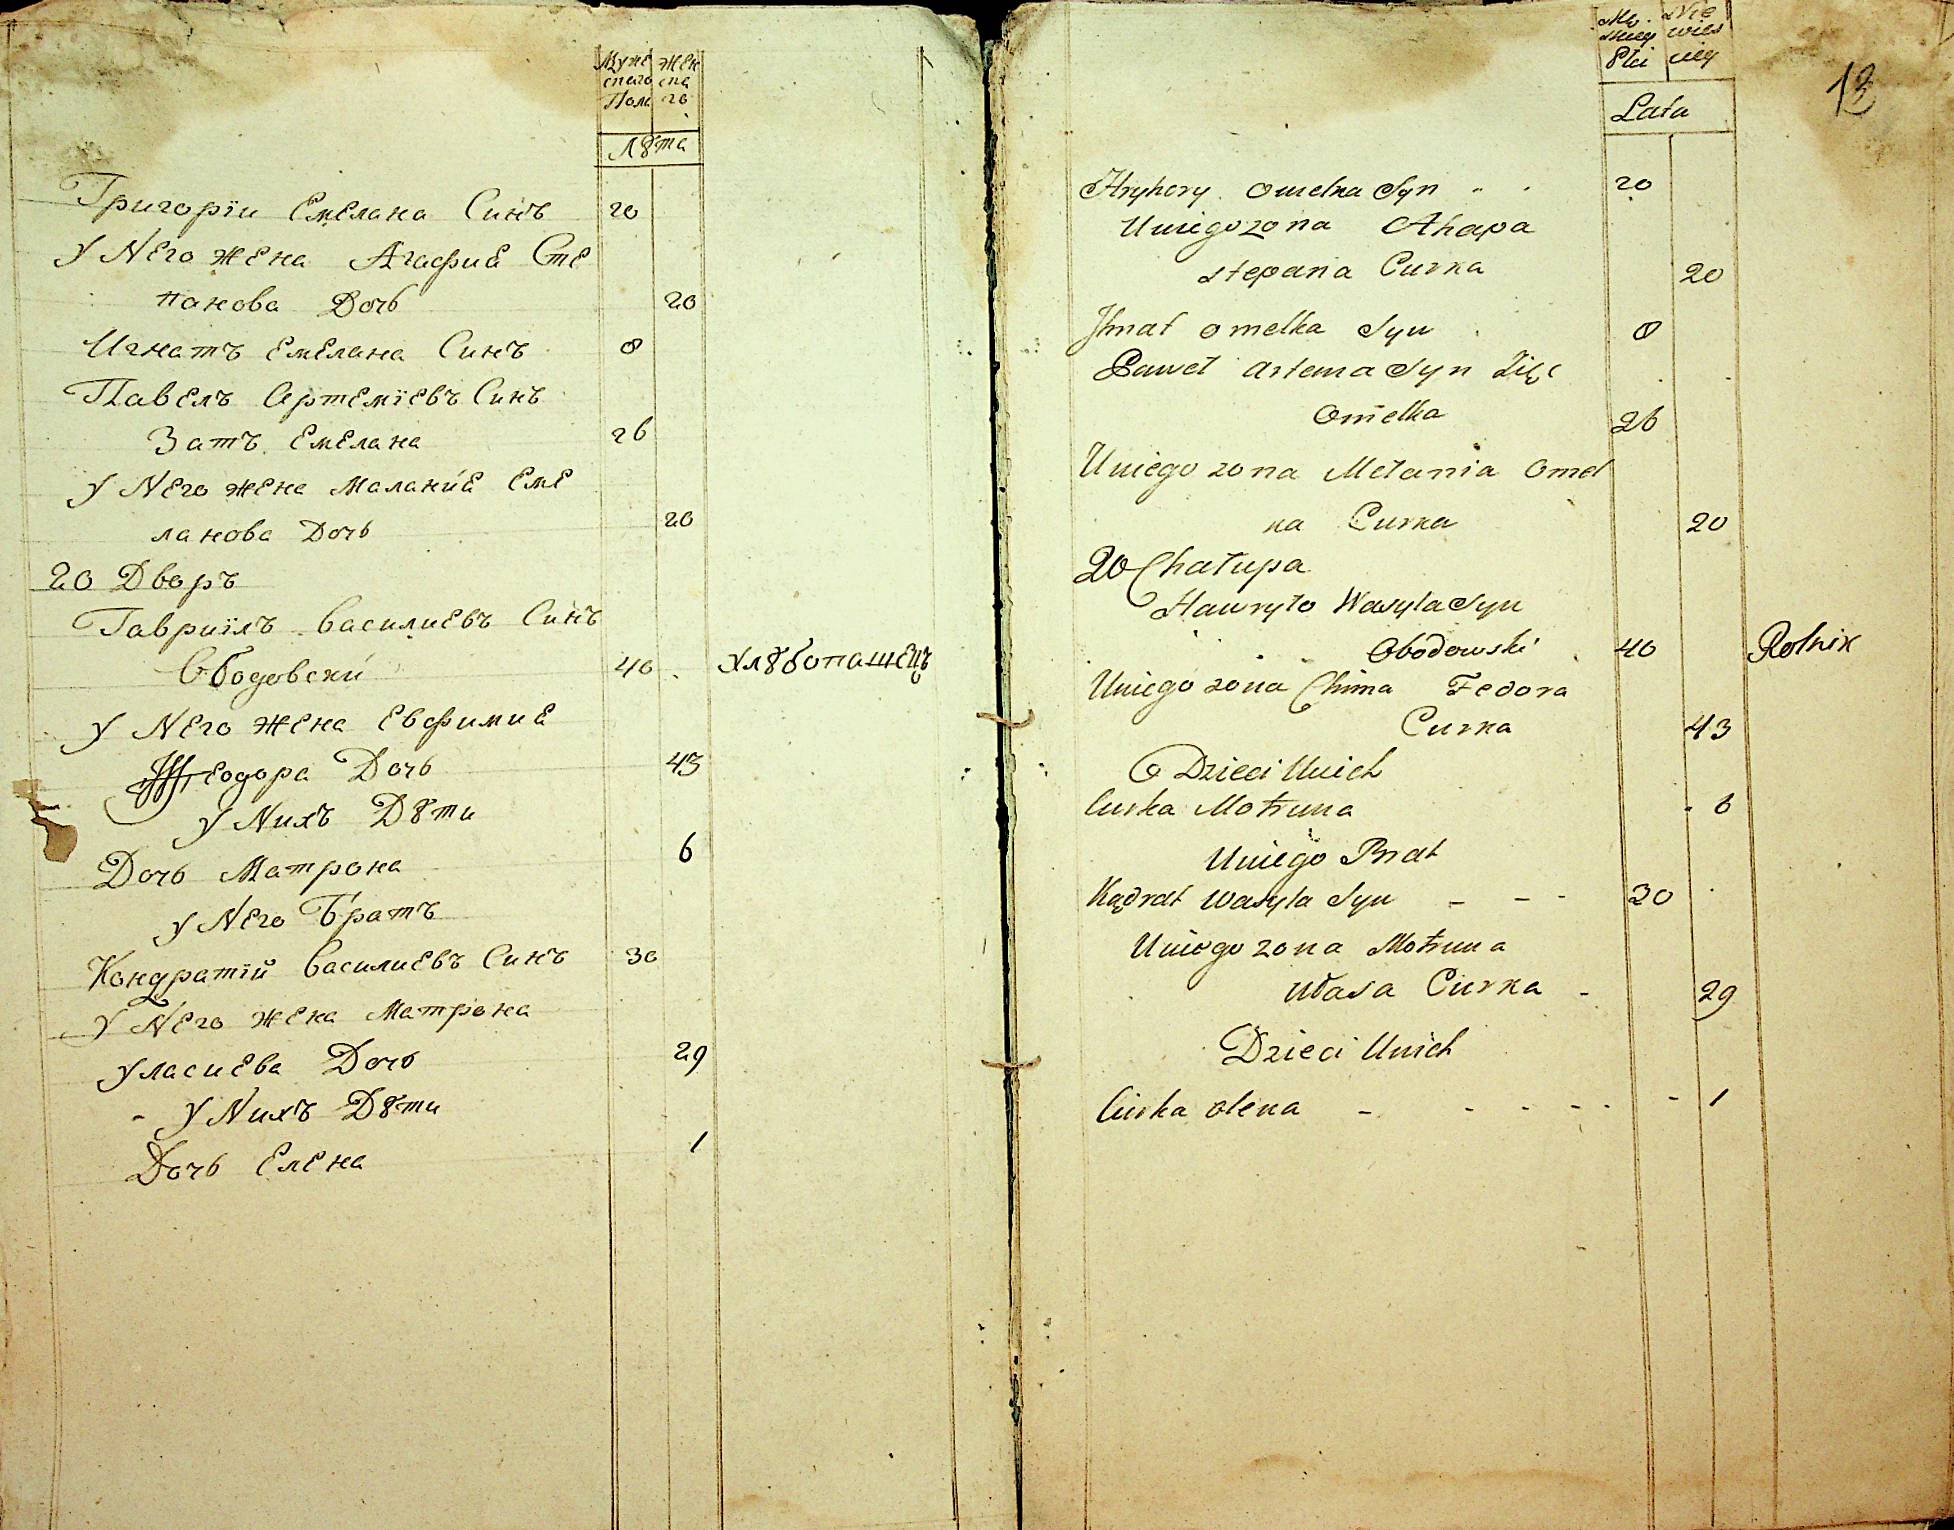 Муже Жен
скаго ска
Пола го
Лѣта
Григорїи Емелана Синъ 20
У Него жена Агафиа Сте
панова Дочь 20
Игнатъ Емелана Синъ 8
Павелъ Артемїевъ Синъ
Затъ Емелана 26
У Него жена Маланиа Еме
ланова Дочь 20
20 Дворъ
Гавриїлъ Василиевъ Синъ
Ободовски 40 Хлѣбопашецъ
У Него жена Евфимиа
Ѳеодора Дочь 43
У Нихъ Дѣти
Дочь Матрона 6
у Него Братъ
Кондратїй Василиевъ Синъ 30
У Него жена Матрона
Уласиева Дочь 29
У Нихъ Дѣти
Дочь Елена 1
Mę Nie
skiey wies
Płci ciey
13
Lata
Hryhory Omelka Syn 20
Uniego zona Ahapa
Stepana Curka 20
Ihnat Omelka Syn 8
Paweł Artema Syn Zięc
Omelka 26
Uniego zona Mełania Omel
ka Curka 20
20 Chałupa
Hawryło Wasyla Syn
Obodowski 40 Rolnik
Uniego zona Chima Fedora
Curka 43
Dzieci Unich
Curka Motruna 6
Uniego Brat
Kądrat Wasyla Syn 30
Uniego zona Motruna
Własa Curka 29
Dzieci Unich
Curka Olena 1